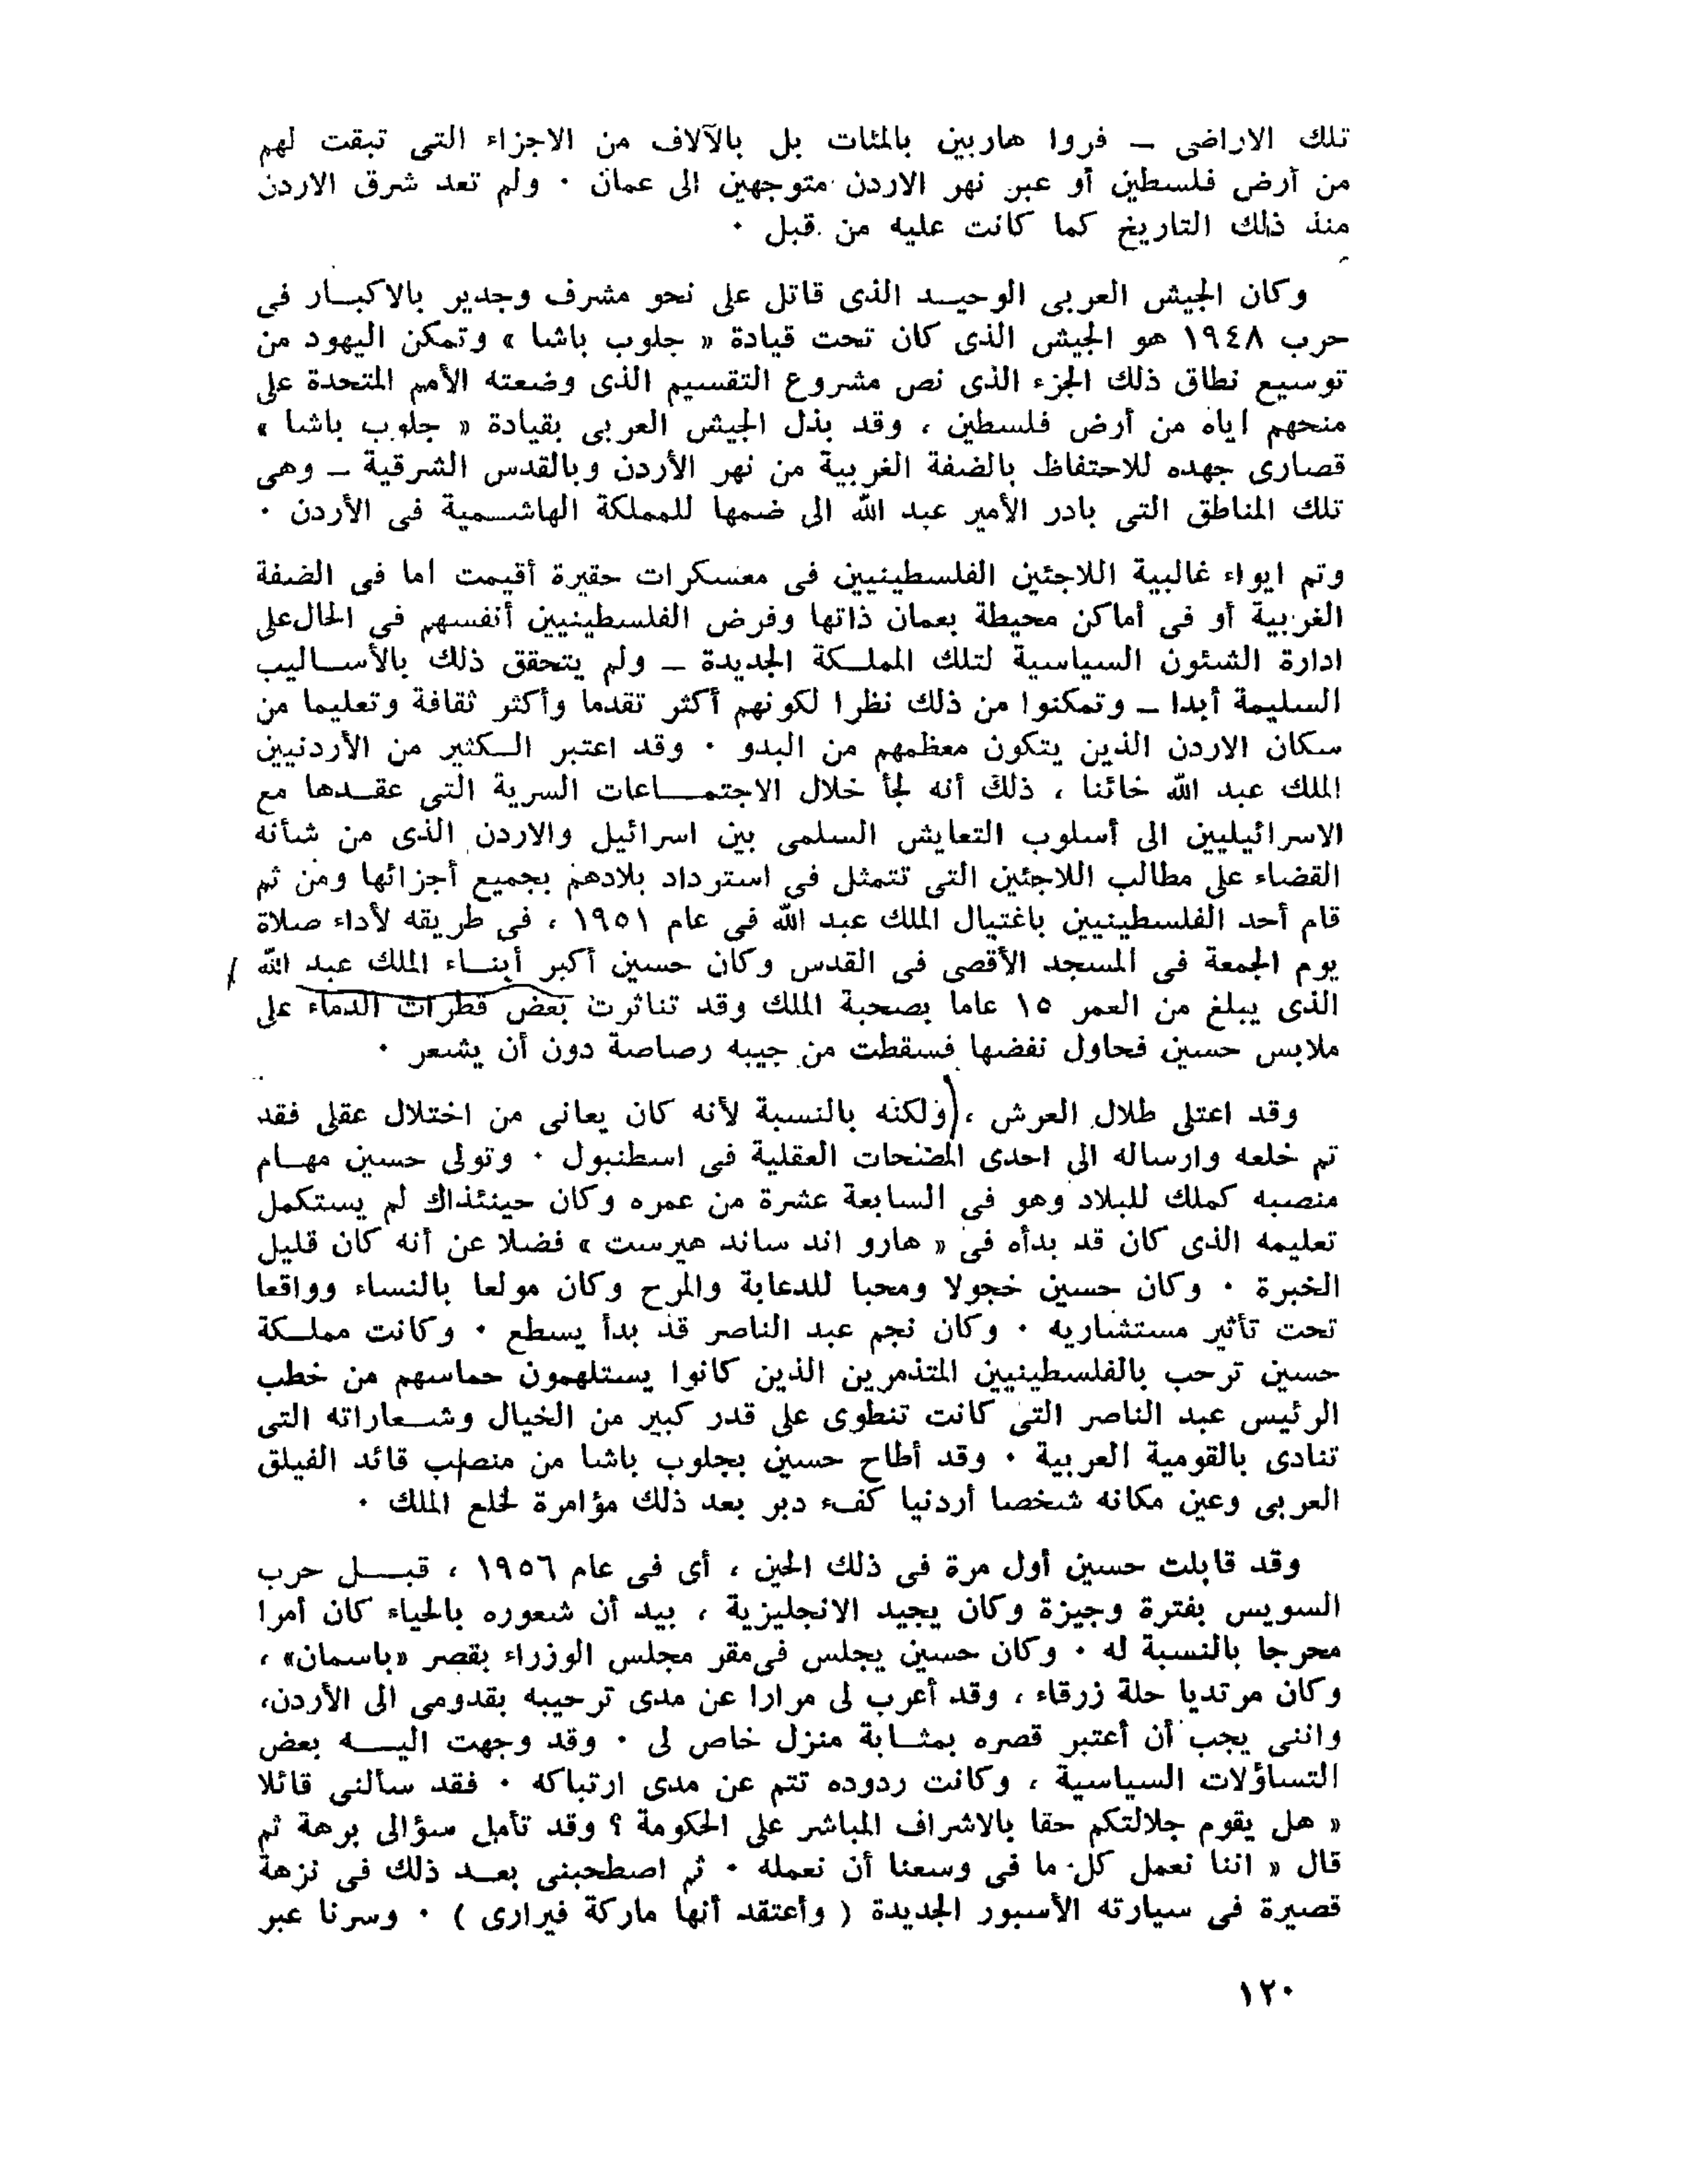 تلك الاراضى – فروا هاربين بالمئات بل بالآلاف من الاجزاء التى تبقت لهم
من أرض فلسطين أو عبر نهر الاردن متوجهين الى عمان ٠ ولم تعد شرق الاردن
منذ ذلك التاريخ كما كانت عليه من قبل ٠
وكان الجيش العربى الوحيد الذى قاتل على نحو مشرف وجدير بالاكبار فى
حرب ١٩٤٨ هو الجيش الذى كان تحت قيادة « جلوب باشا » وتمكن اليهود من
توسيع نطاق ذلك الجزء الذى نص مشروع التقسيم الذى وضعته الأمم المتحدة على
منحهم اياه من أرض فلسطين ، وقد بذل الجيش العربى بقيادة « جلوب باشا »
قصارى جهده للاحتفاظ بالضفة الغربية من نهر الأردن وبالقدس الشرقية – وهى
تلك المناطق التى بادر الأمير عبد الله الى ضمها للمملكة الهاشمية فى الأردن ٠
وتم ايواء غالبية اللاجئين الفلسطينيين فى معسكرات حقيرة أقيمت اما فى الضفة
الغربية أو فى أماكن محيطة بعمان ذاتها وفرض الفلسطينيين أنفسهم فى الحال على
ادارة الشئون السياسية لتلك المملكة الجديدة – ولم يتحقق ذلك بالأساليب
السليمة أبدا – وتمكنوا من ذلك نظرا لكونهم أكثر تقدما وأكثر ثقافة وتعليما من
سكان الاردن الذين يتكون معظمهم من البدو ٠ وقد اعتبر الكثير من الأردنيين
الملك عبد الله خائنا ، ذلك أنه لجأ خلال الاجتماعات السرية التى عقدها مع
الاسرائيليين الى أسلوب التعايش السلمى بين اسرائيل والاردن الذى من شأنه
القضاء على مطالب اللاجئين التى تتمثل فى استرداد بلادهم بجميع أجزائها ومن ثم
قام أحد الفلسطينيين باغتيال الملك عبد الله فى عام ١٩٥١ ، فى طريقه لأداء صلاة
يوم الجمعة فى المسجد الأقصى فى القدس وكان حسين أكبر أبناء الملك عبد الله
الذى يبلغ من العمر ١٥ عاما بصحبة الملك وقد تناثرت بعض قطرات الدماء على
ملابس حسين فحاول نفضها فسقطت من جيبه رصاصة دون أن يشعر ٠
وقد اعتلى طلال العرش ، ولكنه بالنسبة لأنه كان يعانى من اختلال عقلى فقد
تم خلعه وارساله الى احدى المصحات العقلية فى اسطنبول ٠ وتولى حسين مهام
منصبه كملك للبلاد وهو فى السابعة عشرة من عمره وكان حينئذاك لم يستكمل
تعليمه الذى كان قد بدأه فى « هارو اند ساند هيرست » فضلا عن أنه كان قليل
الخبرة ٠ وكان حسين خجولا ومحبا للدعابة والمرح وكان مولعا بالنساء وواقعا
تحت تأثير مستشاريه ٠ وكان نجم عبد الناصر قد بدأ يسطع ٠ وكانت مملكة
حسين ترحب بالفلسطينيين المتذمرين الذين كانوا يستلهمون حماسهم من خطب
الرئيس عبد الناصر التى كانت تنطوى على قدر كبير من الخيال وشعاراته التى
تنادى بالقومية العربية ٠ وقد أطاح حسين بجلوب باشا من منصب قائد الفيلق
العربى وعين مكانه شخصا أردنيا كفء دبر بعد ذلك مؤامرة لخلع الملك ٠
وقد قابلت حسين أول مرة فى ذلك الحين ، أى فى عام ١٩٥٦ ، قبل حرب
السويس بفترة وجيزة وكان يجيد الانجليزية ، بيد أن شعوره بالحياء كان أمرا
محرجا بالنسبة له ٠ وكان حسين يجلس فى مقر مجلس الوزراء بقصر «باسمان» ،
وكان مرتديا حلة زرقاء ، وقد أعرب لى مرارا عن مدى ترحيبه بقدومى الى الأردن،
واننى يجب أن أعتبر قصره بمثابة منزل خاص لى ٠ وقد وجهت اليه بعض
التساؤلات السياسية ، وكانت ردوده تتم عن مدى ارتباكه ٠ فقد سألنى قائلا
« هل يقوم جلالتكم حقا بالاشراف المباشر على الحكومة ؟ وقد تأمل سؤالى برهة ثم
قال « اننا نعمل كل ما فى وسعنا أن نعمله ٠ ثم اصطحبنى بعد ذلك فى نزهة
قصيرة فى سيارته الأسبور الجديدة ( وأعتقد أنها ماركة فيرارى ) ٠ وسرنا عبر
١٢٠